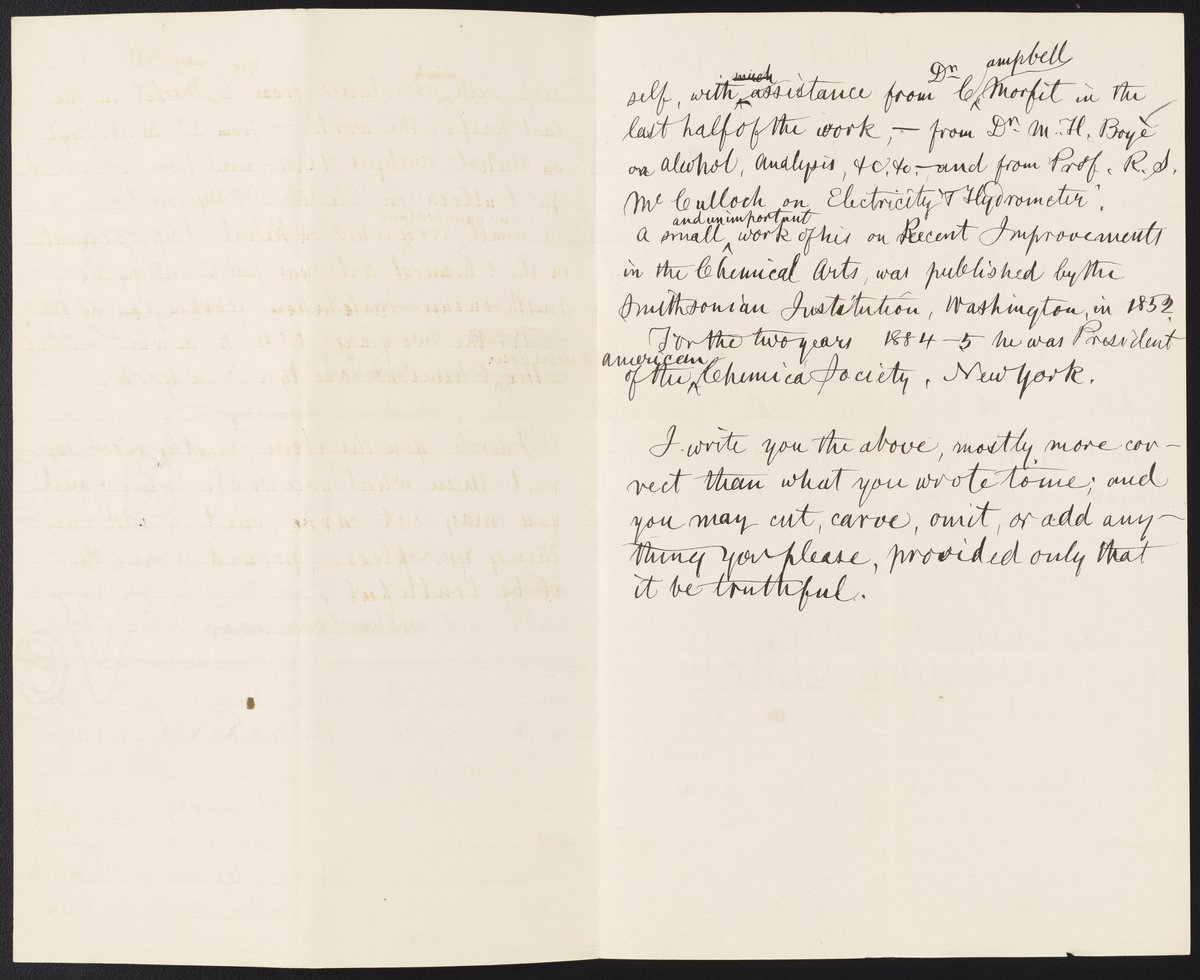 self, with much assistance from Dr. Campbell Morfit in the
last half of the work, — from Dr. M. H. Boyè
on alcohol, analysis, &c. &c. — and from Prof. R. S.
McCulloch on Electricity & Hydrometer".
A small and unimportant work of his on Recent Improvements
in the Chemical Arts, was published by the
Smithsonian Institution, Washington, in 1852
For the two years 1884-5 he was President
of the American Chemical Society, New York.
I write you the above, mostly more cor-
rect than what you wrote to me; and
you may cut, carve, omit, or add any-
thing you please, provided only that
it be truthful.